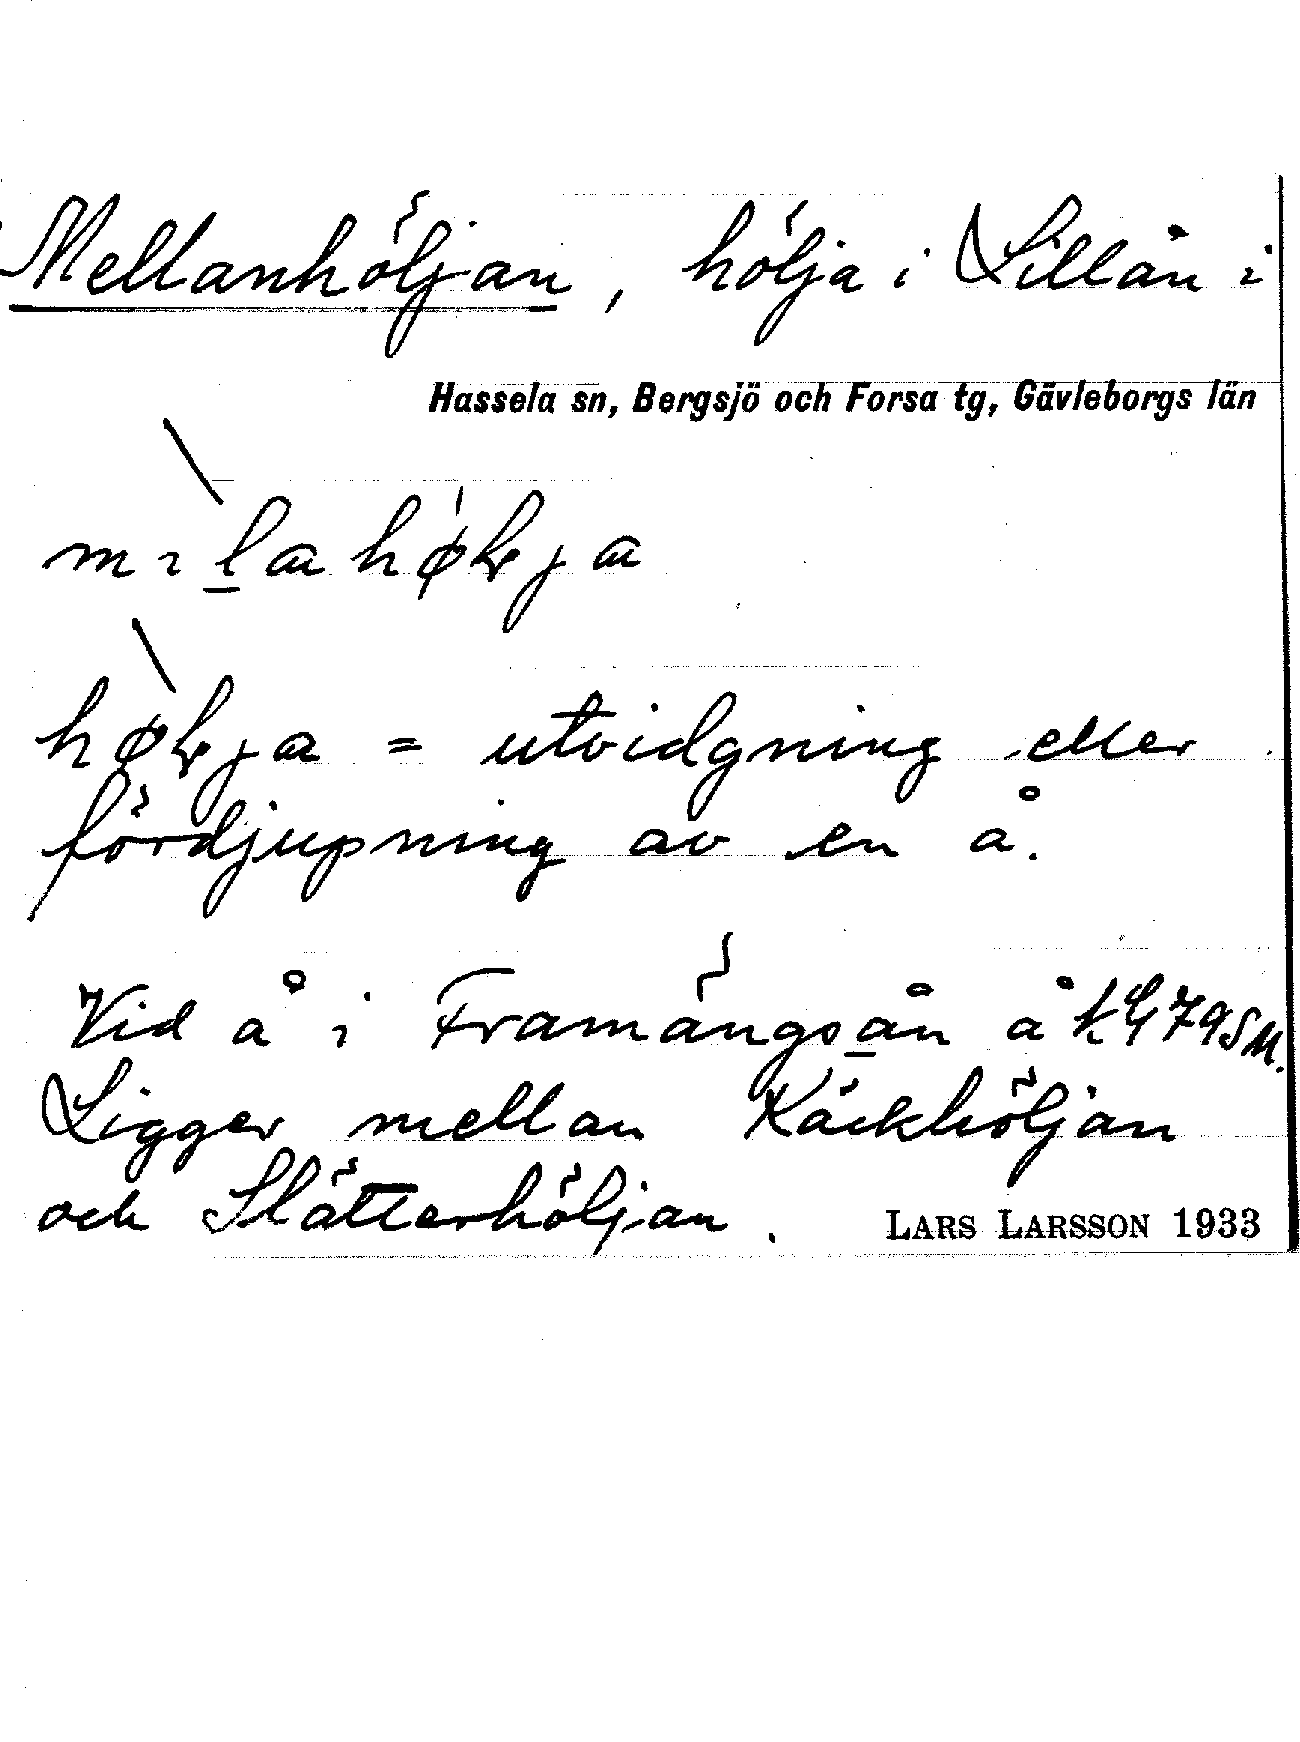 Mellanhöljan, hölja i Lillån i
Hassela sn, Bergsjö och Forsa tg, Gävleborgs län
høɽja = utvidgning eller
fördjupning av en å.
Vid å i Framängsån å
Ligger mellan Käckhöljan
och Slätterhöljan.
LARS LARSSON 1933